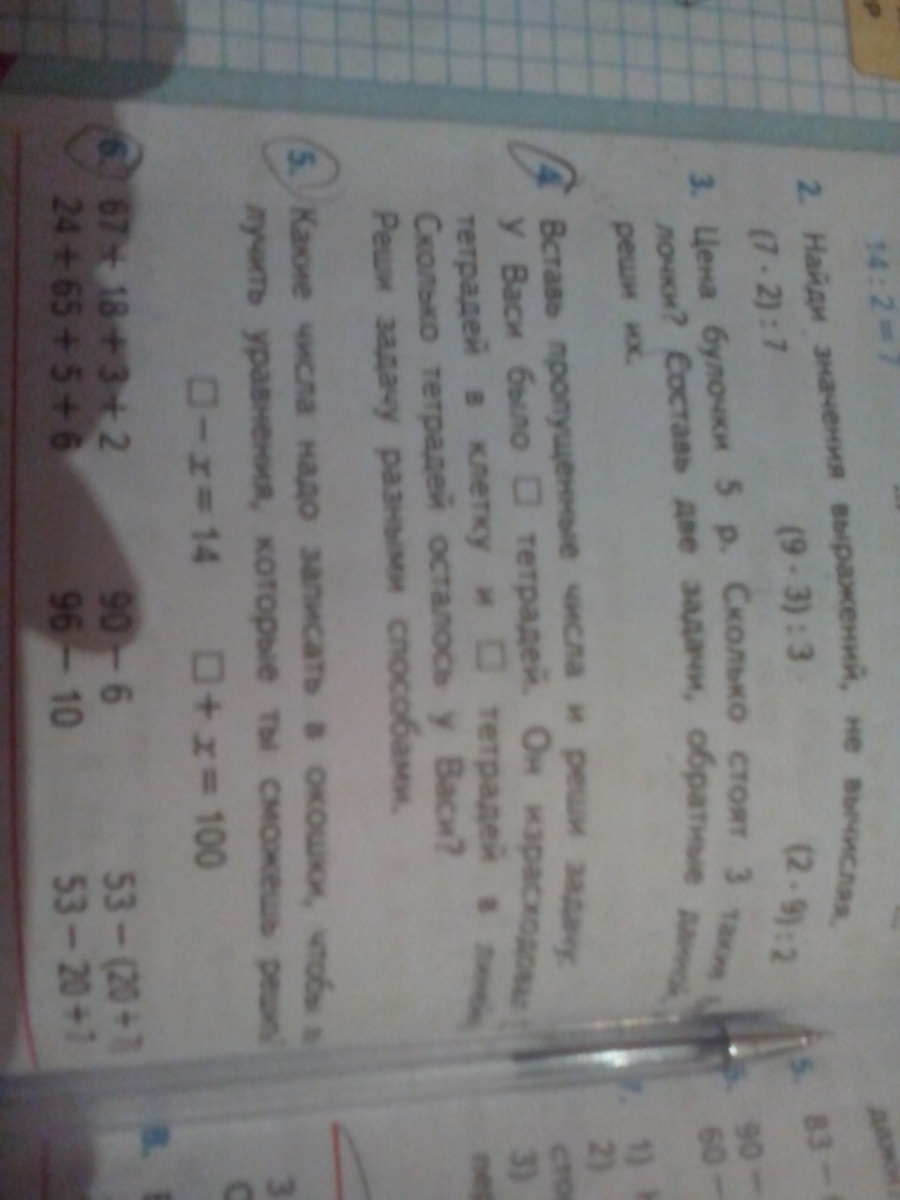 14 : 2 = 7
2. Найди значения выражений, не вычисляя.
(7 · 2) : 7 (9 · 3) : 3 (2 · 9) : 2
3. Цена булочки 5 р. Сколько стоят 3 такие
лочки? Составь две задачи, обратные данной,
реши их.
4. Вставь пропущенные числа и реши задачу.
У Васи было □ тетрадей. Он израсходовал
тетрадей в клетку и □ тетрадей в
Сколько тетрадей осталось у Васи?
Реши задачу разными способами.
5. Какие числа надо записать в окошки, чтобы
лучить уравнения, которые ты сможешь
□ − x = 14 □ + x = 100
6. 67 + 18 + 3 + 2 90 − 6 53 − (20 + 7
24 + 65 + 5 + 6 96 − 10 53 − 20 + 7
5. 83 −
90 −
60 −
7. 1)
2)
3)
8.